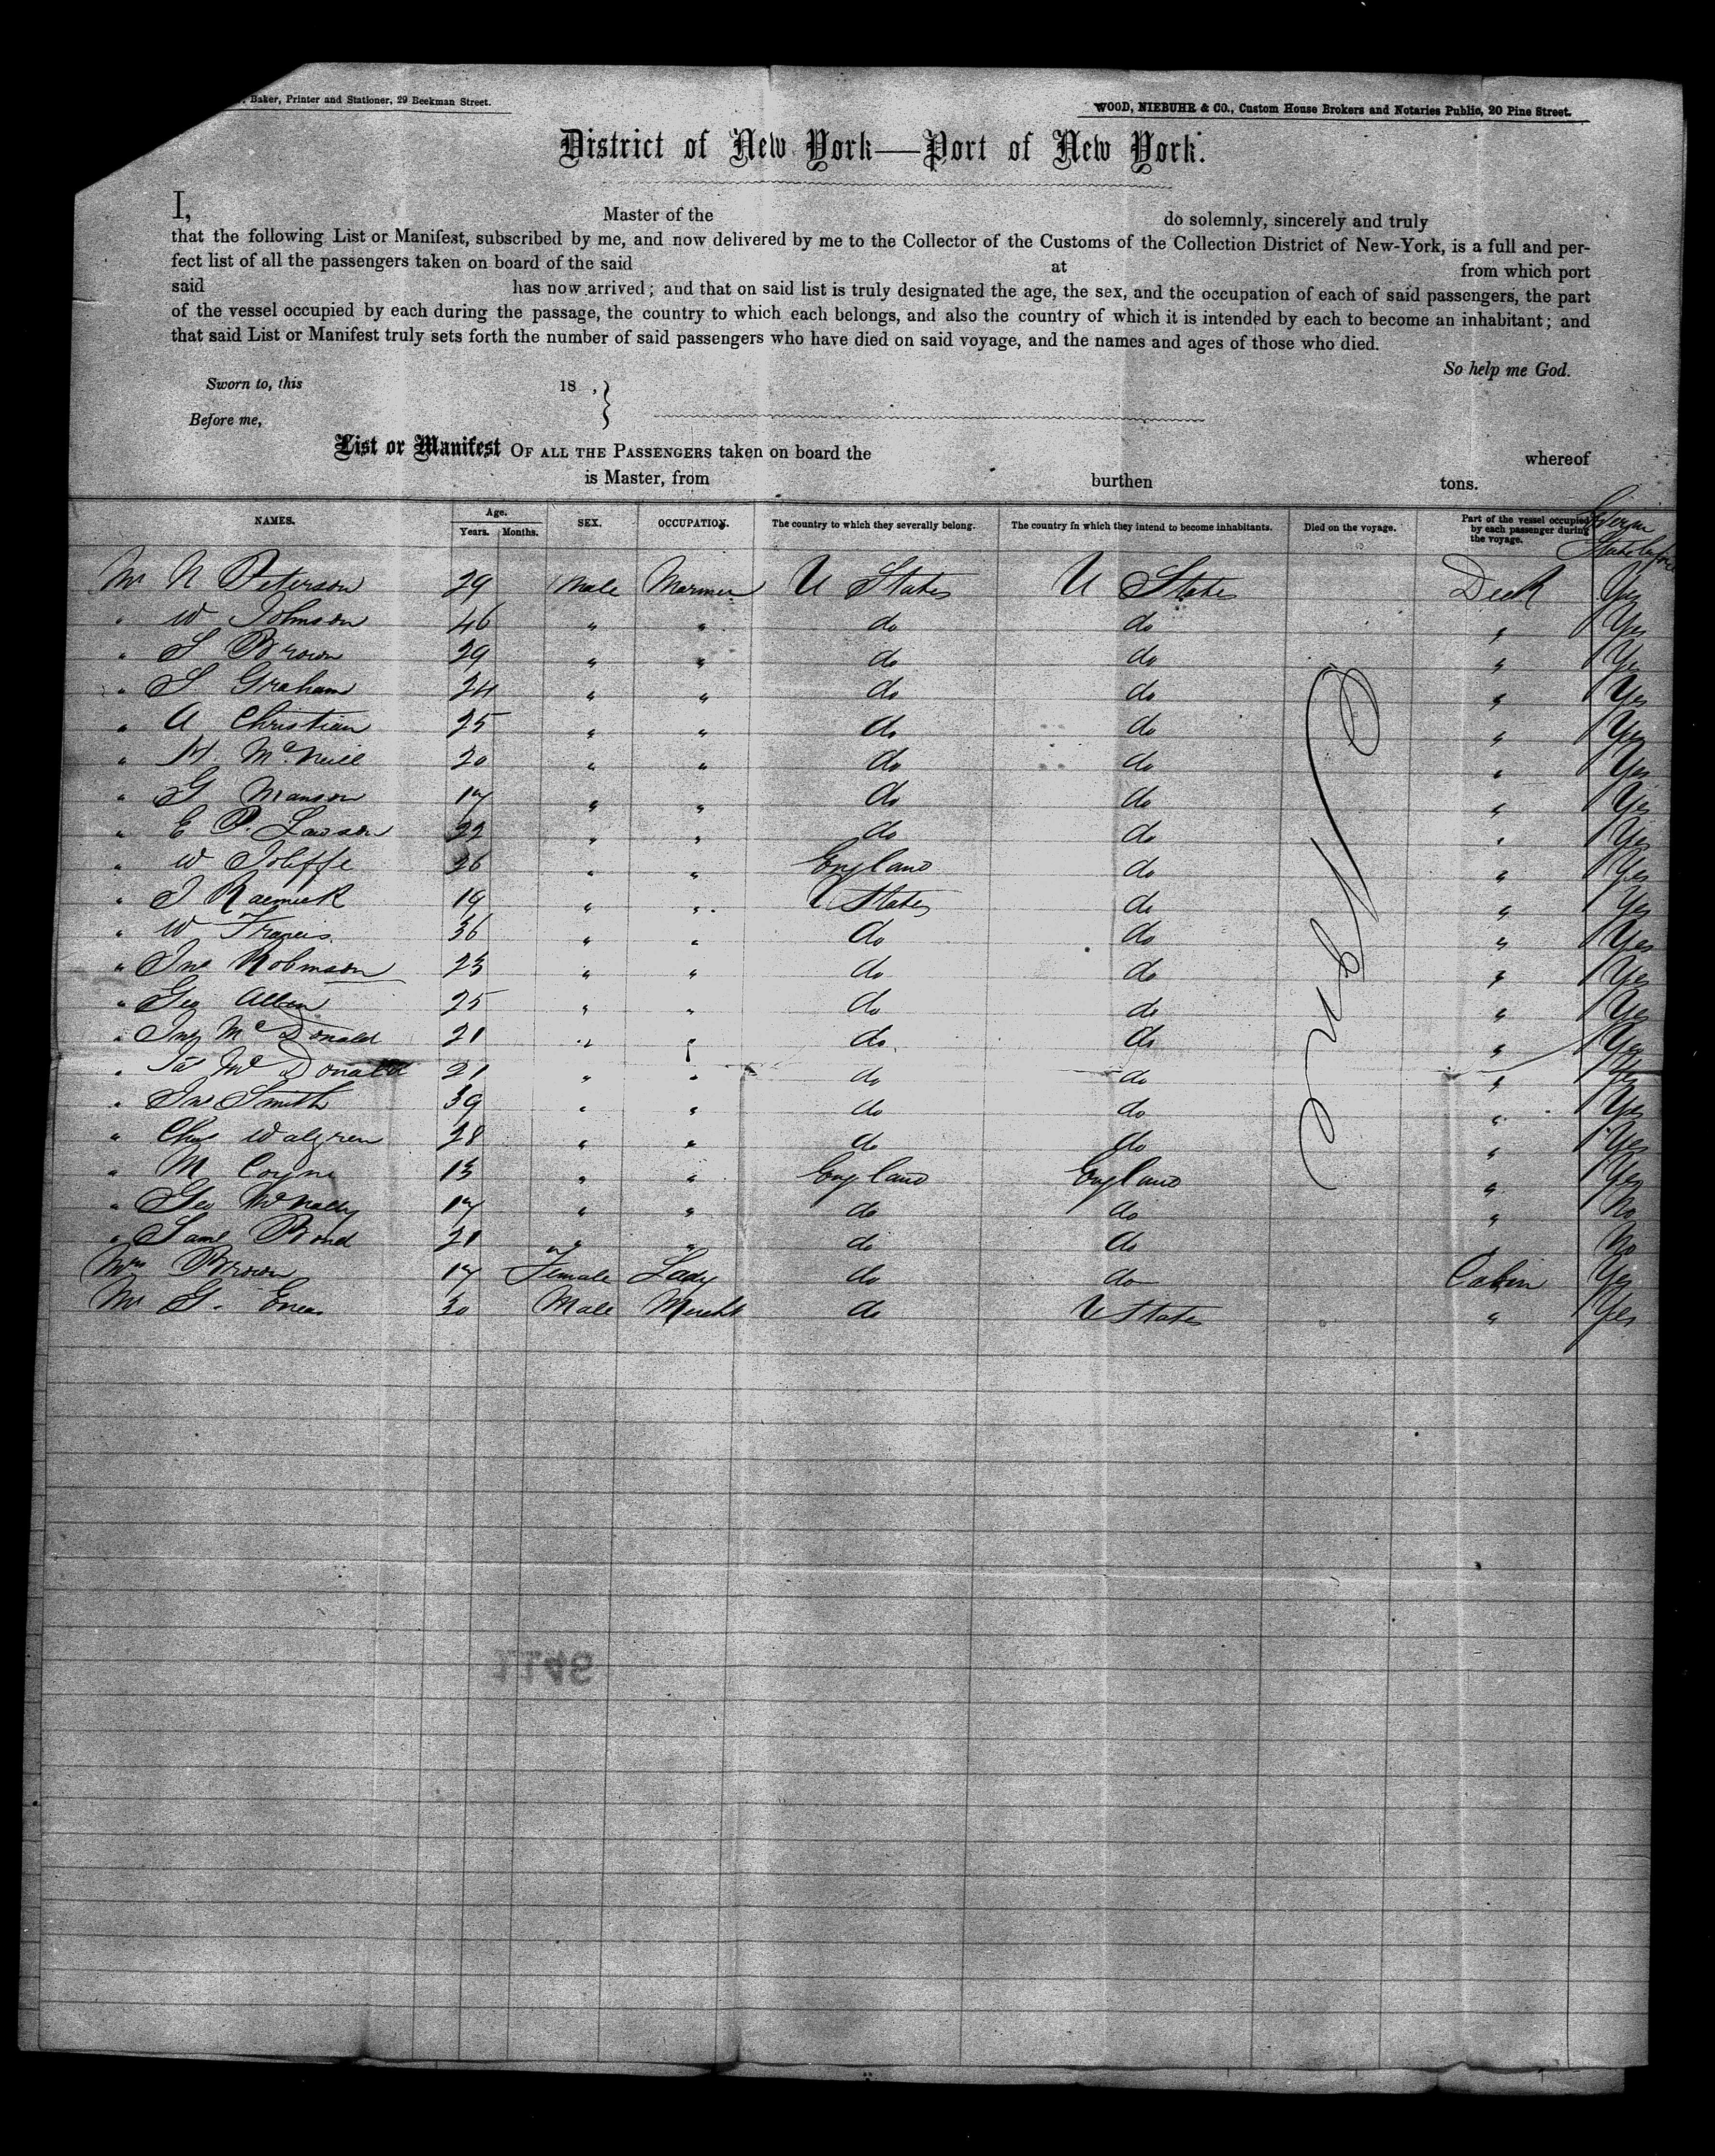 Baker, Printer and Stationer, 29 Beekman Street.
WOOD, NIEBUHR & CO., Custom House Brokers and Notaries Public, 20 Pine Street.
District of New York—Port of New York.
I, Master of the do solemnly, sincerely and truly
that the following List or Manifest, subscribed by me, and now delivered by me to the Collector of the Customs of the Collection District of New-York, is a full and per-
fect list of all the passengers taken on board of the said at from which port
said has now arrived; and that on said list is truly designated the age, the sex, and the occupation of each of said passengers, the part
of the vessel occupied by each during the passage, the country to which each belongs, and also the country of which it is intended by each to become an inhabitant; and
that said List or Manifest truly sets forth the number of said passengers who have died on said voyage, and the names and ages of those who died.
So help me God.
Sworn to, this 18 , }
Before me,
List or Manifest OF ALL THE PASSENGERS taken on board the whereof
is Master, from burthen tons.
NAMES. Age. Years. Months. SEX. OCCUPATION. The country to which they severally belong. The country in which they intend to become inhabitants. Died on the voyage. Part of the vessel occupied by each passenger during the voyage.
Mr N Peterson 29 Male Mariner U States U States Deck Yes
" W Johnson 46 " " do do " Yes
" S Brown 29 " " do do " Yes
" S Graham 24 " " do do " Yes
" A Christian 25 " " do do " Yes
" H. McNeill 20 " " do do " Yes
" G Manson 17 " " do do " Yes
" E P. Lawson 22 " " do do " Yes
" W Joliffe 26 " " England do " Yes
" J 19 " " U States do " Yes
" W Francis 36 " " do do " Yes
" Jno Robinson 23 " " do do " Yes
" Geo Allen 25 " " do do " Yes
" Jno McDonald 21 " " do do " Yes
" Jas McDonald 21 " " do do " Yes
" Jno Smith 39 " " do do " Yes
" Chas Walgren 28 " " do do " Yes
" M Coyne 13 " " England England " Yes
" Geo McNally 17 " " do do " No
" Saml Bond 21 " " do do " No
Mrs Brown 17 Female Lady do do Cabin Yes
Mr G. 30 Male Mercht do U States " Yes
1146